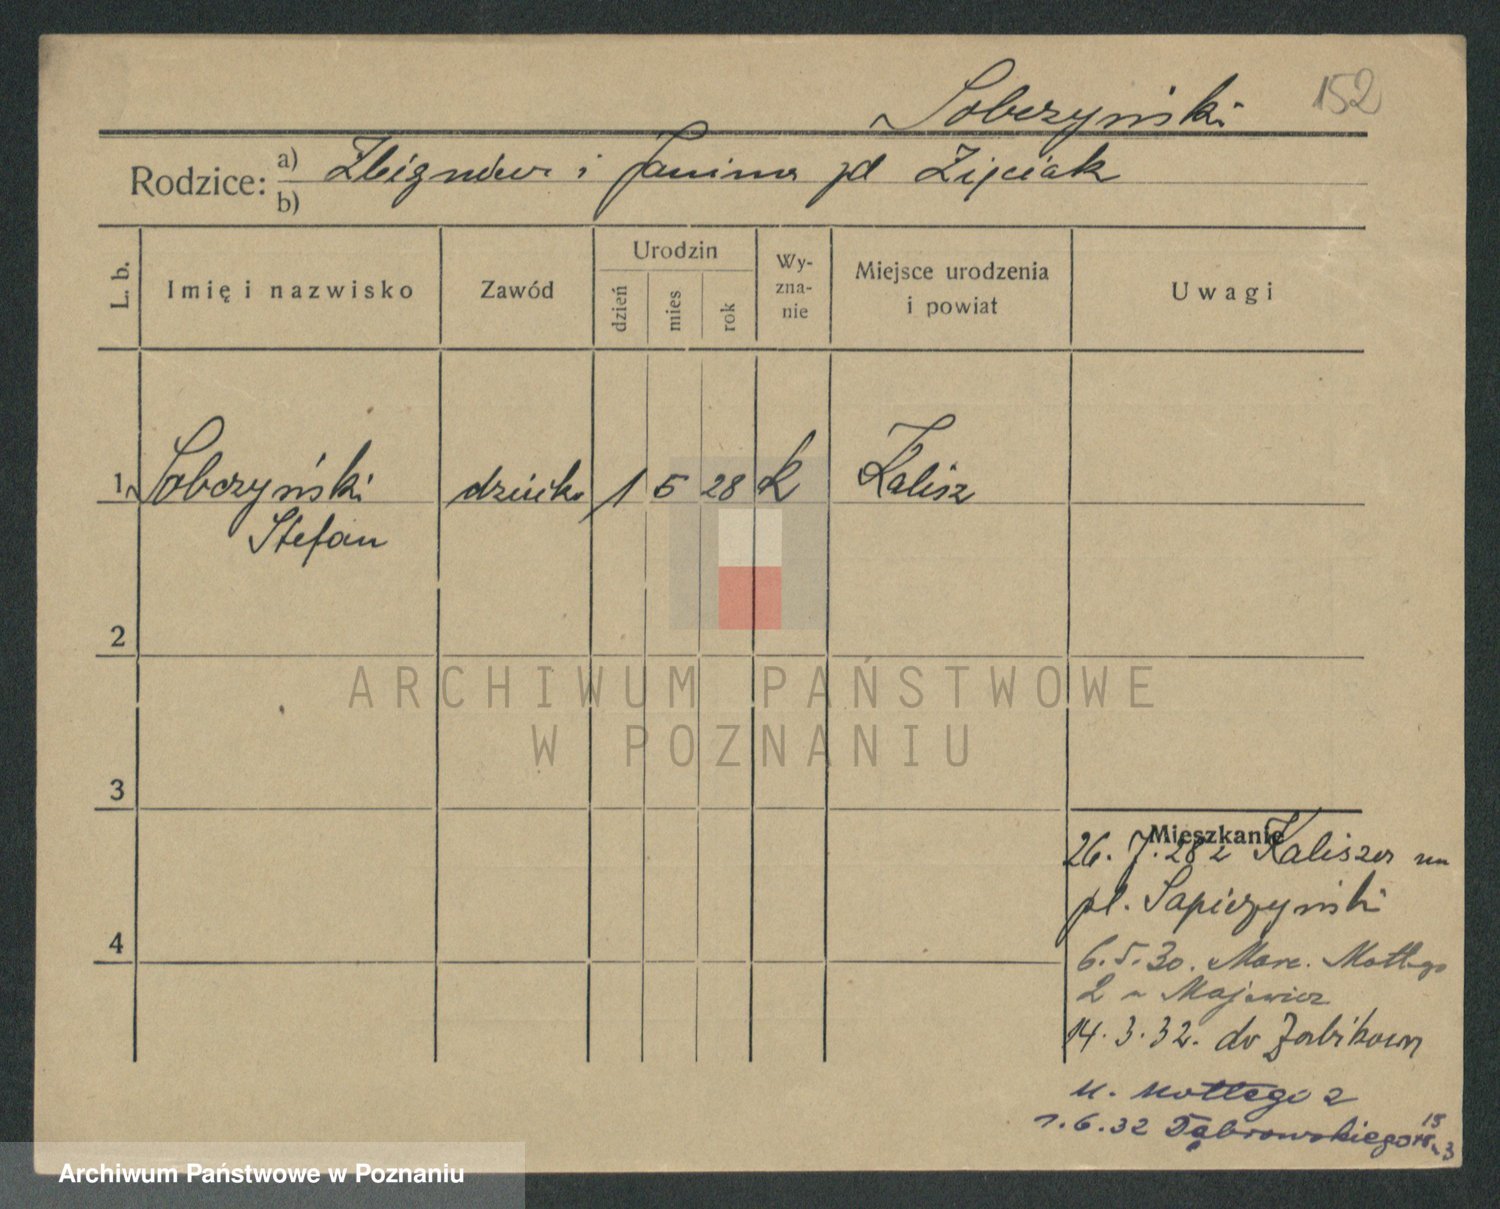 Sobczyński 152
Rodzice: a) Zbigniew i Janina zd Zięciak
b)
L. b.
Imię i nazwisko
Zawód
Urodzin
dzień
mies
rok
Wy-
zna-
nie
Miejsce urodzenia
i powiat
Uwagi
1 Sobczyński dziecko 1 5 28 k Kalisz
Stefan
2
ARCHIWUM PAŃSTWOWE
W POZNANIU
3
Mieszkanie
26. 7. 28 z Kalisza na
pl. Sapieżyński
4
6.5.30. Marc. Mottego
2 Majewicz
14.3.32. do Żabikowa
M. Mottego 2
1.6.32 Dąbrowskiego
Archiwum Państwowe w Poznaniu